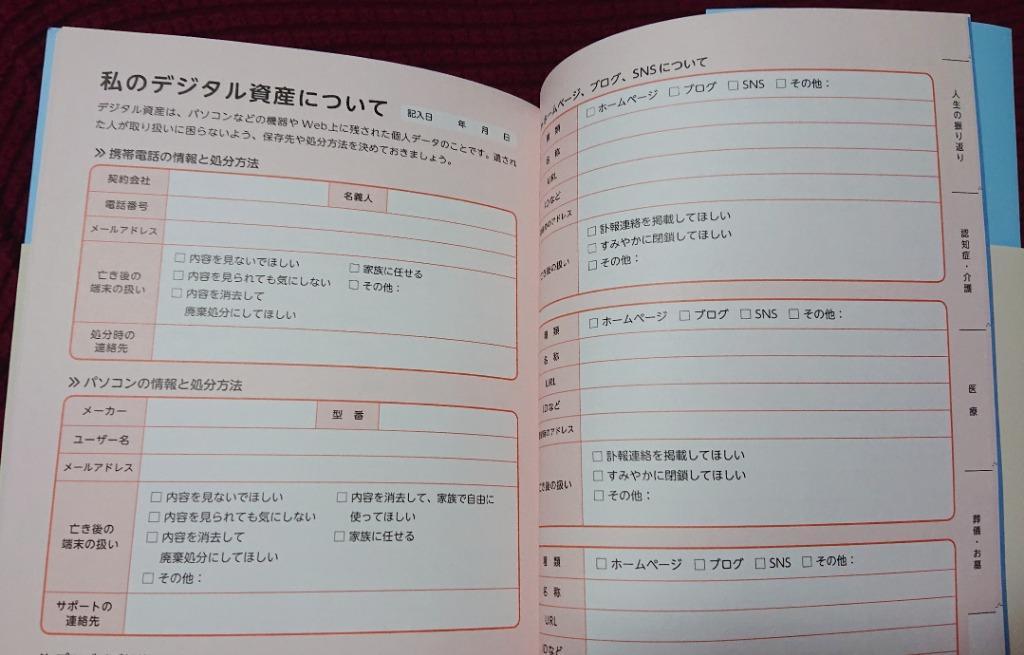 私のデジタル資産について
記入日 年 月 日
デジタル資産は、パソコンなどの機器やWeb上に残された個人データのことです。遺され
た人が取り扱いに困らないよう、保存先や処分方法を決めておきましょう。
≫携帯電話の情報と処分方法
契約会社 名義人
電話番号
メールアドレス
亡き後の
端末の扱い
□内容を見ないでほしい
□内容を見られても気にしない
□内容を消去して
廃棄処分にしてほしい
□家族に任せる
□その他：
処分時の
連絡先
≫パソコンの情報と処分方法
メーカー 型番
ユーザー名
メールアドレス
亡き後の
端末の扱い
□内容を見ないでほしい
□内容を見られても気にしない
□内容を消去して
廃棄処分にしてほしい
□その他：
□内容を消去して、家族で自由に
使ってほしい
□家族に任せる
サポートの
連絡先
ホームページ、ブログ、SNSについて
種類 □ホームページ □ブログ □SNS □その他：
名称
URL
IDなど
のアドレス
後の扱い
□訃報連絡を掲載してほしい
□すみやかに閉鎖してほしい
□その他：
種類 □ホームページ □ブログ □SNS □その他：
名称
URL
IDなど
のアドレス
き後の扱い
□訃報連絡を掲載してほしい
□すみやかに閉鎖してほしい
□その他：
種類 □ホームページ □ブログ □SNS □その他：
名称
URL
IDなど
人生の振り返り
認知症・介護
医療
葬儀・お墓